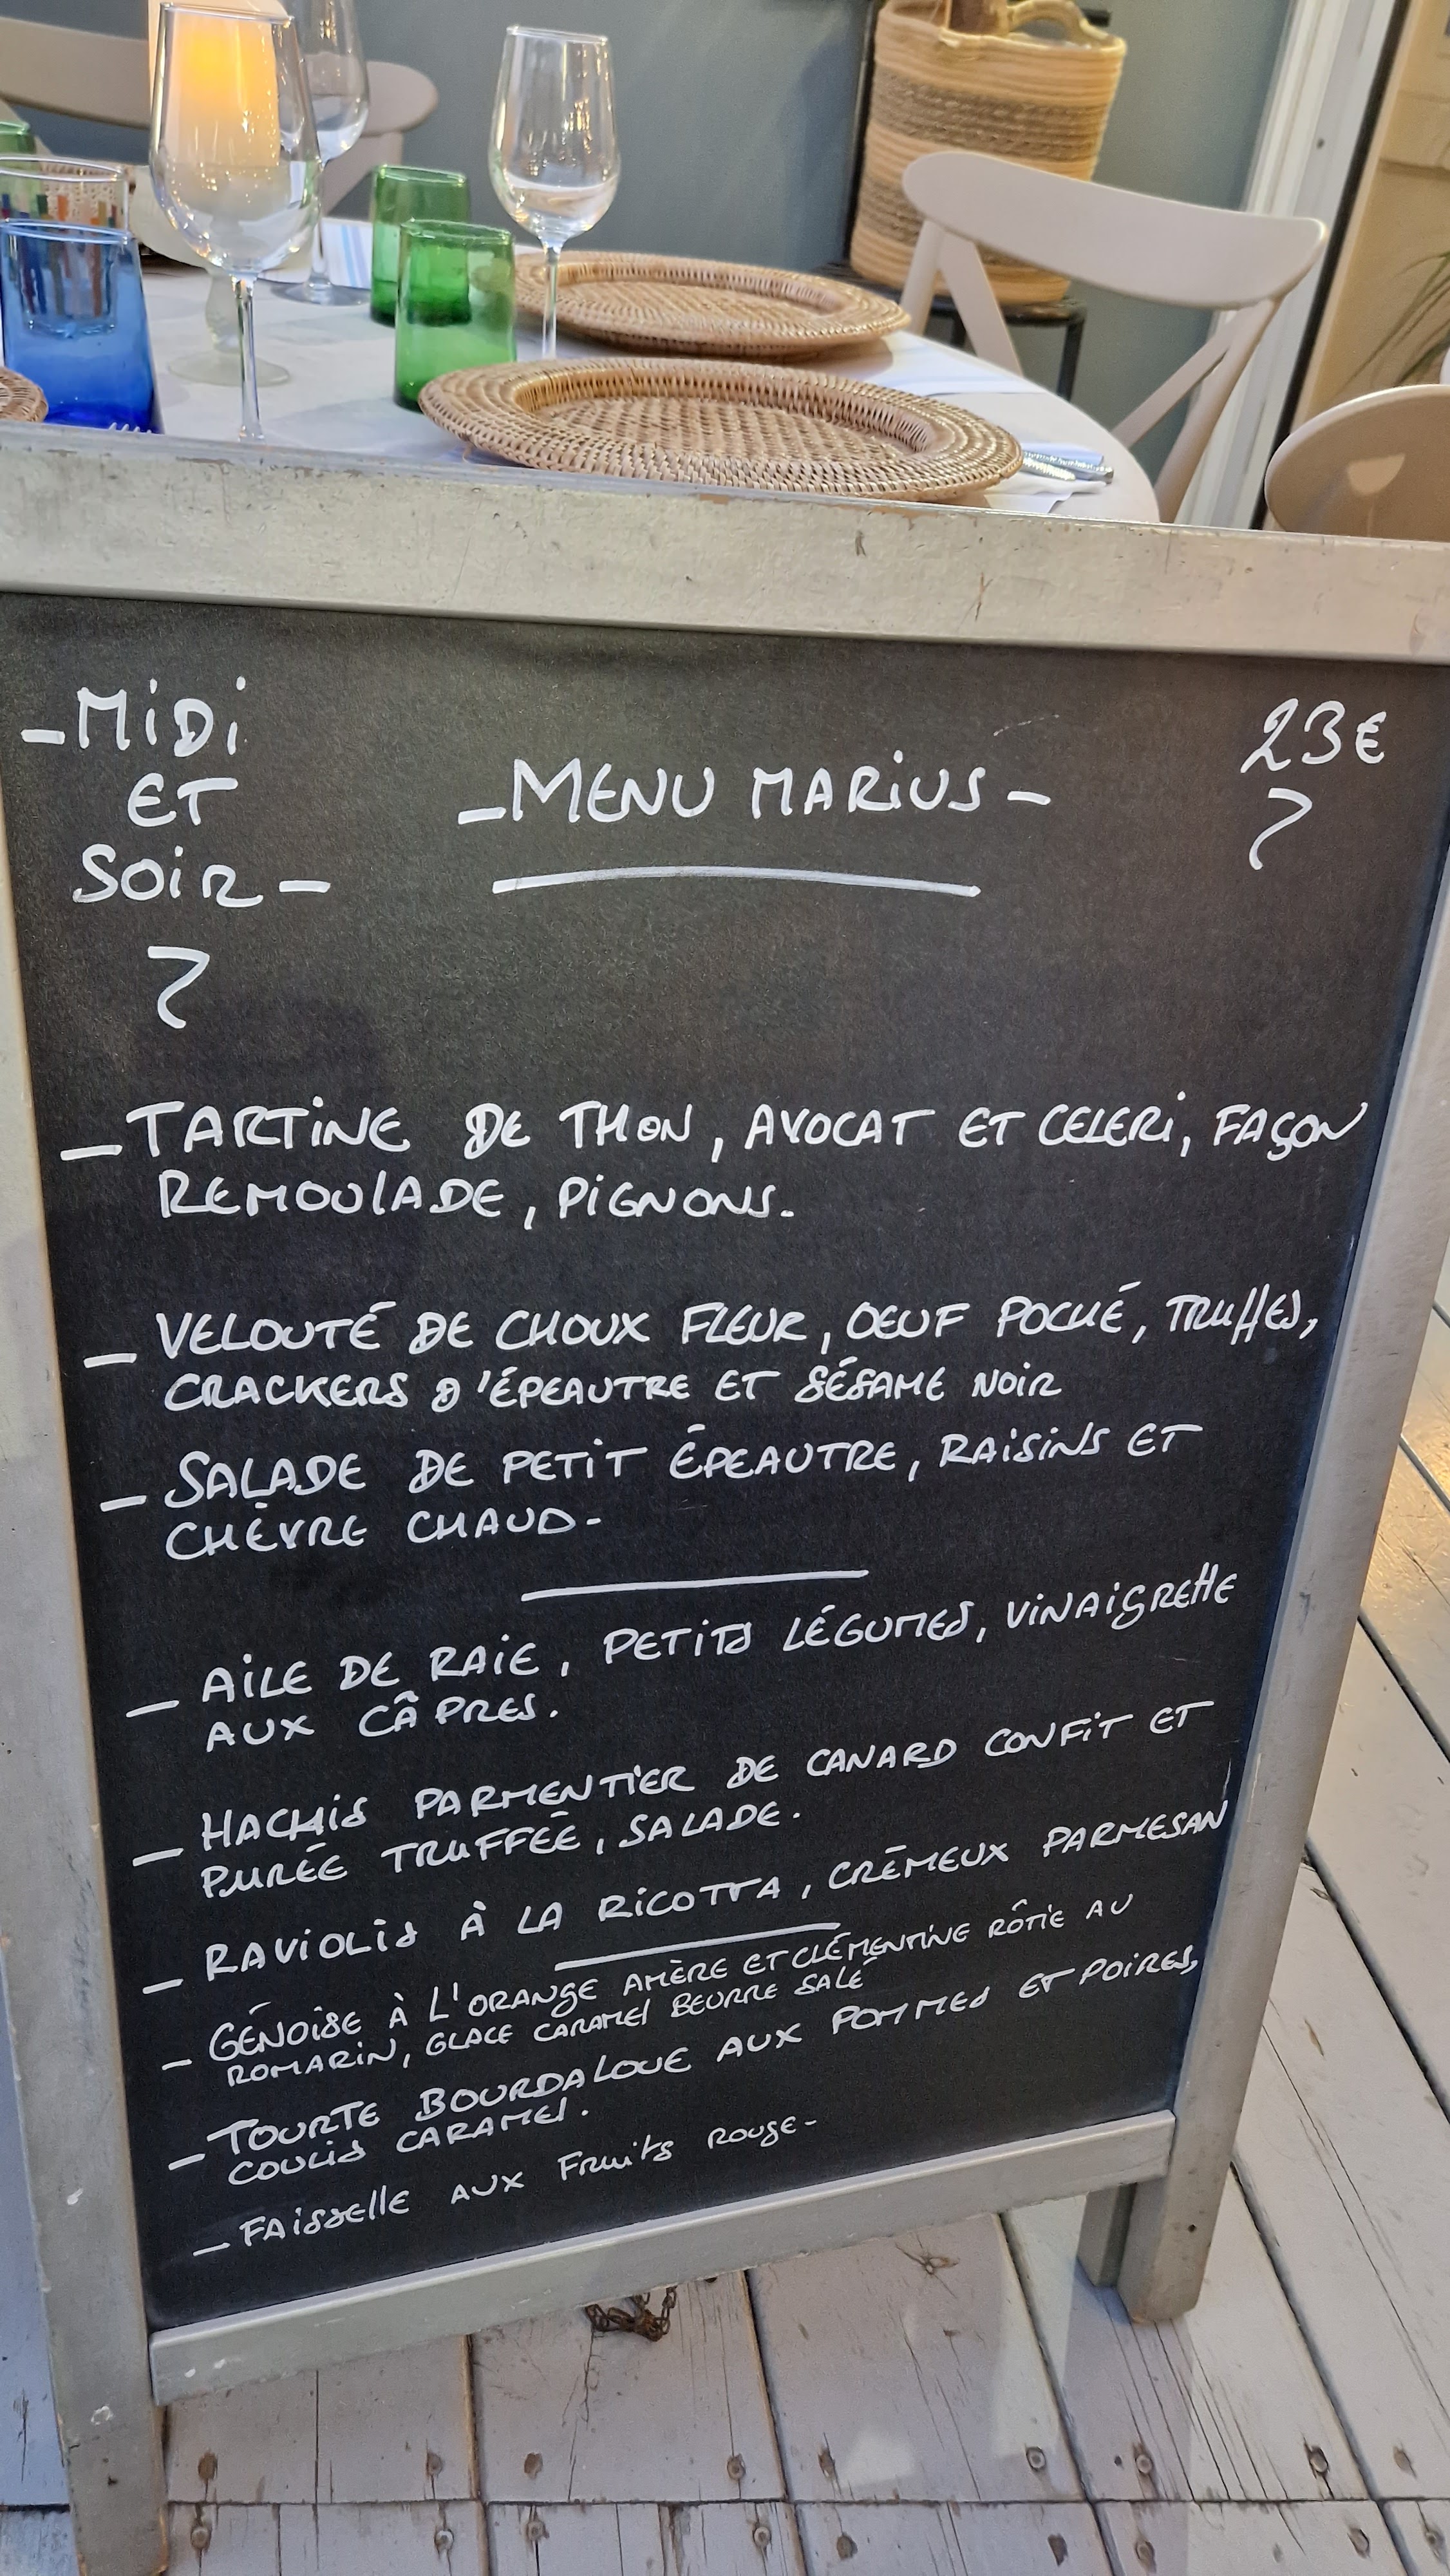 -MiDi
ET
SOiR-
-MENU MARiUS-
23€
-TARTiNE DE THON, AVOCAT ET CELERi, FAÇON
REMOULADE, PiGNONS.
- VELOUTÉ DE CHOUX FLEUR, OEUF POCHÉ, TRUFFES,
CRACKERS D'ÉPEAUTRE ET SÉSAME NOIR
- SALADE DE PETIT ÉPEAUTRE, RAISINS ET
CHÈVRE CHAUD-
- AiLE DE RAiE, PETITS LÉGUMES, ViNAiGRETTE
AUX CÂPRES.
- HACHiS PARMENTIER DE CANARD CONFiT ET
PURÉE TRUFFÉE, SALADE.
- RAViOLiS À LA RiCOTTA, CRÉMEUX PARMESAN
- GÉNOiSE À L'ORANGE AMÈRE ET CLÉMENTINE RÔTIE AU
ROMARiN, GLACE CARAMEL BEURRE SALÉ
- TOURTE BOURDALOUE AUX POMMES ET POIRES,
COULiS CARAMEL.
- FAiSSElle AUX Fruits ROUGE-